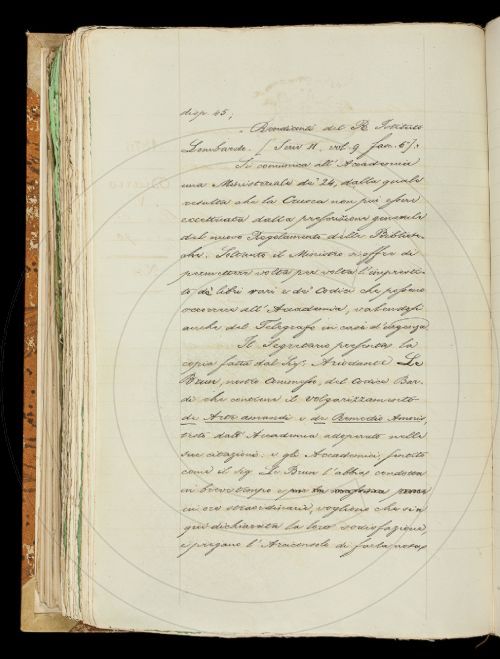 disp. 45;
„ Rendiconti del R. Istituto
Lombardo. (Serie II. vol. 9 fasc. 6.7).
Si comunica all'Accademia
una Ministeriale de' 24, dalla quale
risulta che la Crusca non può essere
eccettuata dalla prescrizione generale
del nuovo Regolamento delle Bibliote-
che. Soltanto il Ministro si offre di
permettere volta per volta l'impresti-
to di libri rari e di Codici che possono
occorrere all'Accademia, valendosi
anche del Telegrafo in casi d'urgenza
Il Segretario presenta la
copia fatta dal Sig. Ariodante Le
Brun, nostro Commesso, del Codice Bar-
di che contiene il volgarizzamento
de Arte amandi e de Remedio Amoris,
testi dall'Accademia adoperati nelle
sue citazioni: e gli Accademici, sentito
come il Sig. Le Brun l'abbia condotta
in breve tempo e
in ore straordinarie, vogliono che sia
qui dichiarata la loro sodisfazione
e pregano l'Arciconsolo di farla nota